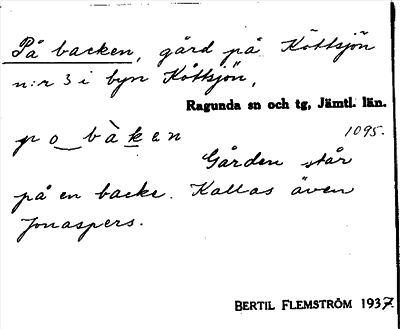 På backen, gård på Köttsjön
n:r 3 i byn Köttsjön,
Ragunda sn och tg, Jämtl. län.
po‿bàken 1095.
Gården står
på en backe. Kallas även
Jonaspers.
BERTIL FLEMSTRÖM 1937.